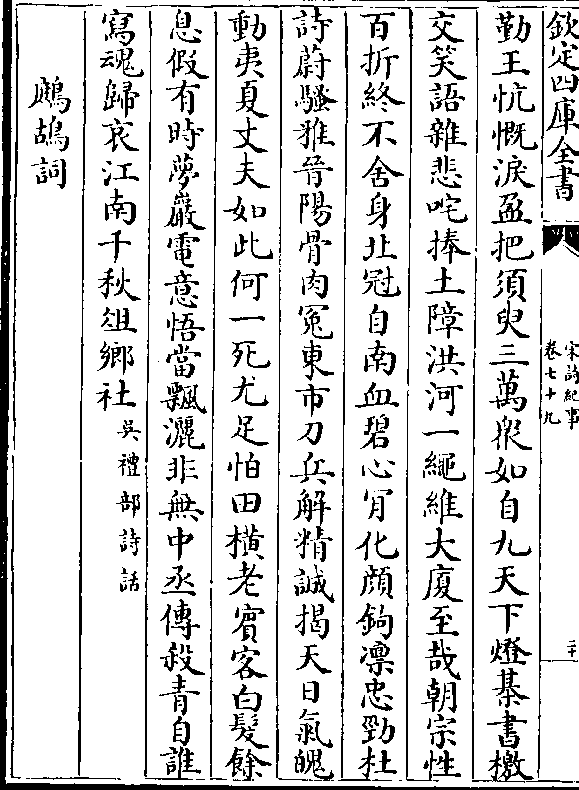 欽定四庫全書
宋詩紀事
卷七十九
二十
勤王忼慨淚盈把須臾三萬衆如自九天下燈棊書檄
交笑語雜悲咤捧土障洪河一繩維大廈至哉朝宗性
百折終不舍身北冠自南血碧心肎化顔鉤凛忠勁杜
詩蔚騷雅晉陽骨肉冤東市刀兵解精誠揭天日氣魄
動夷夏丈夫如此何一死尤足怕田横老賓客白髮餘
息假有時夢巖電意悟當飄灑非無中丞傳殺青自誰
寫魂歸哀江南千秋俎鄉社吳禮部詩話
鷓鴣詞